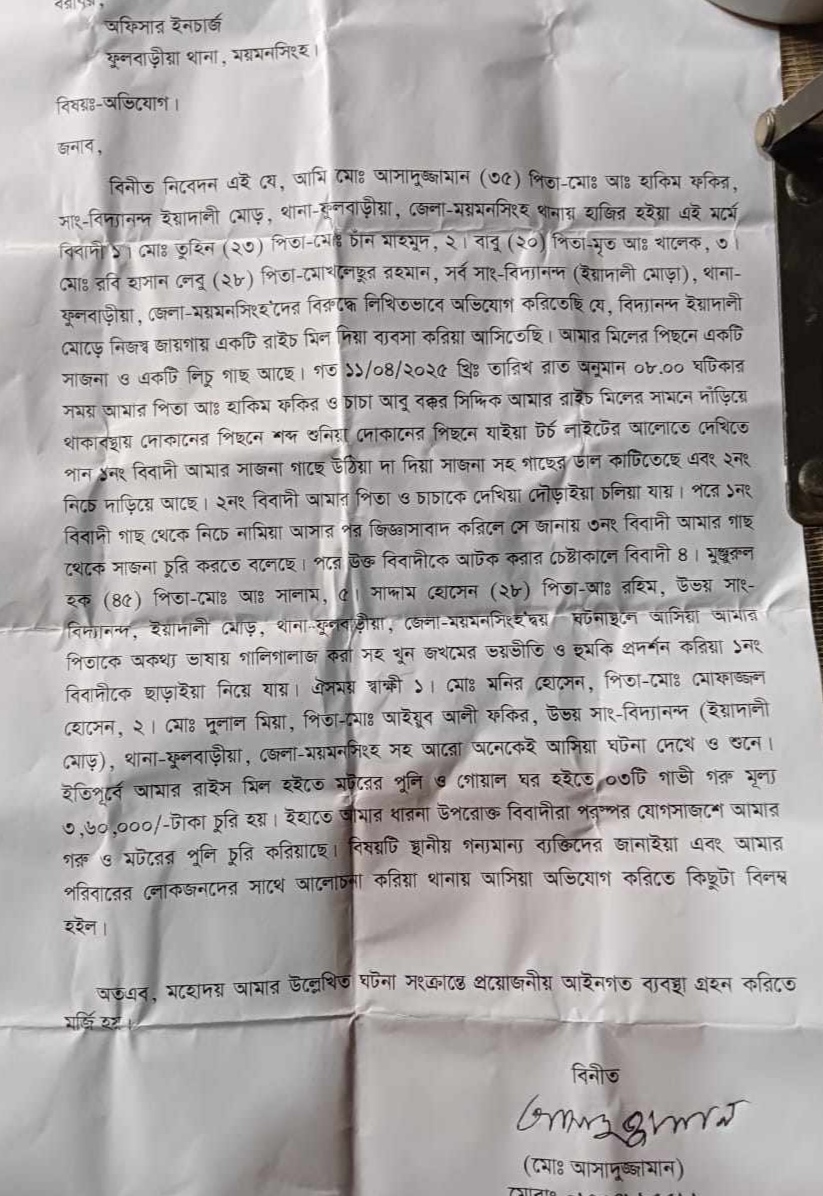 বরাবর,
অফিসার ইনচার্জ
ফুলবাড়ীয়া থানা, ময়মনসিংহ।
বিষয়ঃ-অভিযোগ।
জনাব,
বিনীত নিবেদন এই যে, আমি মোঃ আসাদুজ্জামান (৩৫) পিতা-মোঃ আঃ হাকিম ফকির,
সাং-বিদ্যানন্দ ইয়াদালী মোড়, থানা-ফুলবাড়ীয়া, জেলা-ময়মনসিংহ থানায় হাজির হইয়া এই মর্মে
বিবাদী ১। মোঃ তুহিন (২৩) পিতা-মোঃ চাঁন মাহমুদ, ২। বাবু (২০) পিতা-মৃত আঃ খালেক, ৩।
মোঃ রবি হাসান লেবু (২৮) পিতা-মোখলেছুর রহমান, সর্ব সাং-বিদ্যানন্দ (ইয়াদালী মোড়া), থানা-
ফুলবাড়ীয়া, জেলা-ময়মনসিংহ'দের বিরুদ্ধে লিখিতভাবে অভিযোগ করিতেছি যে, বিদ্যানন্দ ইয়াদালী
মোড়ে নিজস্ব জায়গায় একটি রাইচ মিল দিয়া ব্যবসা করিয়া আসিতেছি। আমার মিলের পিছনে একটি
সাজনা ও একটি লিচু গাছ আছে। গত ১১/০৪/২০২৫ খ্রিঃ তারিখ রাত অনুমান ০৮.০০ ঘটিকার
সময় আমার পিতা আঃ হাকিম ফকির ও চাচা আবু বক্কর সিদ্দিক আমার রাইচ মিলের সামনে দাঁড়িয়ে
থাকাবস্থায় দোকানের পিছনে শব্দ শুনিয়া দোকানের পিছনে যাইয়া টর্চ লাইটের আলোতে দেখিতে
পান ১নং বিবাদী আমার সাজনা গাছে উঠিয়া দা দিয়া সাজনা সহ গাছের ডাল কাটিতেছে এবং ২নং
নিচে দাড়িয়ে আছে। ২নং বিবাদী আমার পিতা ও চাচাকে দেখিয়া দৌড়াইয়া চলিয়া যায়। পরে ১নং
বিবাদী গাছ থেকে নিচে নামিয়া আসার পর জিজ্ঞাসাবাদ করিলে সে জানায় ৩নং বিবাদী আমার গাছ
থেকে সাজনা চুরি করতে বলেছে। পরে উক্ত বিবাদীকে আটক করার চেষ্টাকালে বিবাদী ৪। মুঞ্জুরুল
হক (৪৫) পিতা-মোঃ আঃ সালাম, ৫। সাদ্দাম হোসেন (২৮) পিতা-আঃ রহিম, উভয় সাং-
বিদ্যানন্দ, ইয়াদালী মোড়, থানা-ফুলবাড়ীয়া, জেলা-ময়মনসিংহ'দ্বয় ঘটনাস্থলে আসিয়া আমার
পিতাকে অকথ্য ভাষায় গালিগালাজ করা সহ খুন জখমের ভয়ভীতি ও হুমকি প্রদর্শন করিয়া ১নং
বিবাদীকে ছাড়াইয়া নিয়ে যায়। ঐসময় স্বাক্ষী ১। মোঃ মনির হোসেন, পিতা-মোঃ মোফাজ্জল
হোসেন, ২। মোঃ দুলাল মিয়া, পিতা-মোঃ আইয়ুব আলী ফকির, উভয় সাং-বিদ্যানন্দ (ইয়াদালী
মোড়), থানা-ফুলবাড়ীয়া, জেলা-ময়মনসিংহ সহ আরো অনেকেই আসিয়া ঘটনা দেখে ও শুনে।
ইতিপূর্বে আমার রাইস মিল হইতে মটরের পুলি ও গোয়াল ঘর হইতে ০৩টি গাভী গরু মূল্য
৩,৬০,০০০/-টাকা চুরি হয়। ইহাতে আমার ধারনা উপরোক্ত বিবাদীরা পরস্পর যোগসাজশে আমার
গরু ও মটরের পুলি চুরি করিয়াছে। বিষয়টি স্থানীয় গন্যমান্য ব্যক্তিদের জানাইয়া এবং আমার
পরিবারের লোকজনদের সাথে আলোচনা করিয়া থানায় আসিয়া অভিযোগ করিতে কিছুটা বিলম্ব
হইল।
অতএব, মহোদয় আমার উল্লেখিত ঘটনা সংক্রান্তে প্রয়োজনীয় আইনগত ব্যবস্থা গ্রহন করিতে
মর্জি হয়।
বিনীত
আসাদুজ্জামান
(মোঃ আসাদুজ্জামান)